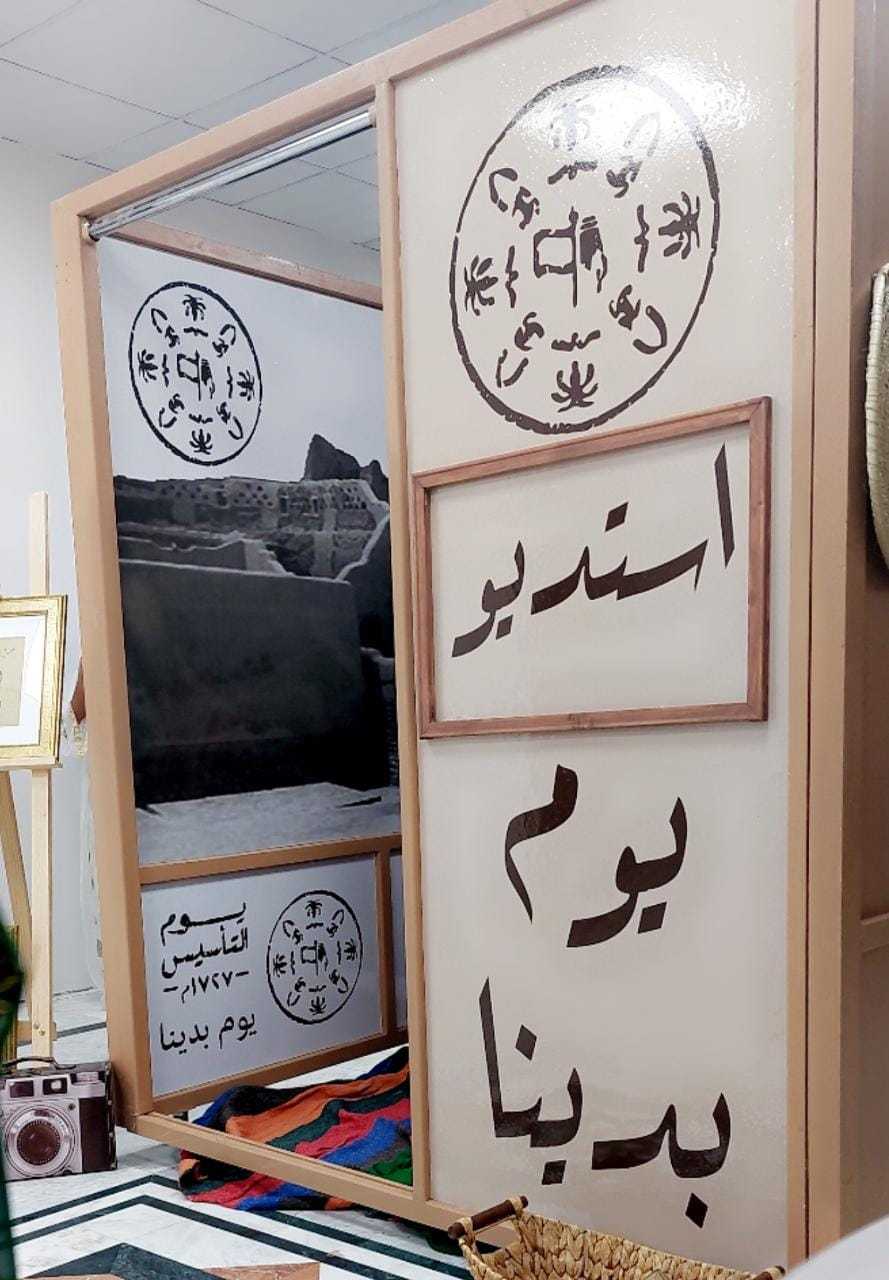 استديو
يوم
بدينا
يــوم
التأسيس
-١٧٢٧م-
يوم بدينا